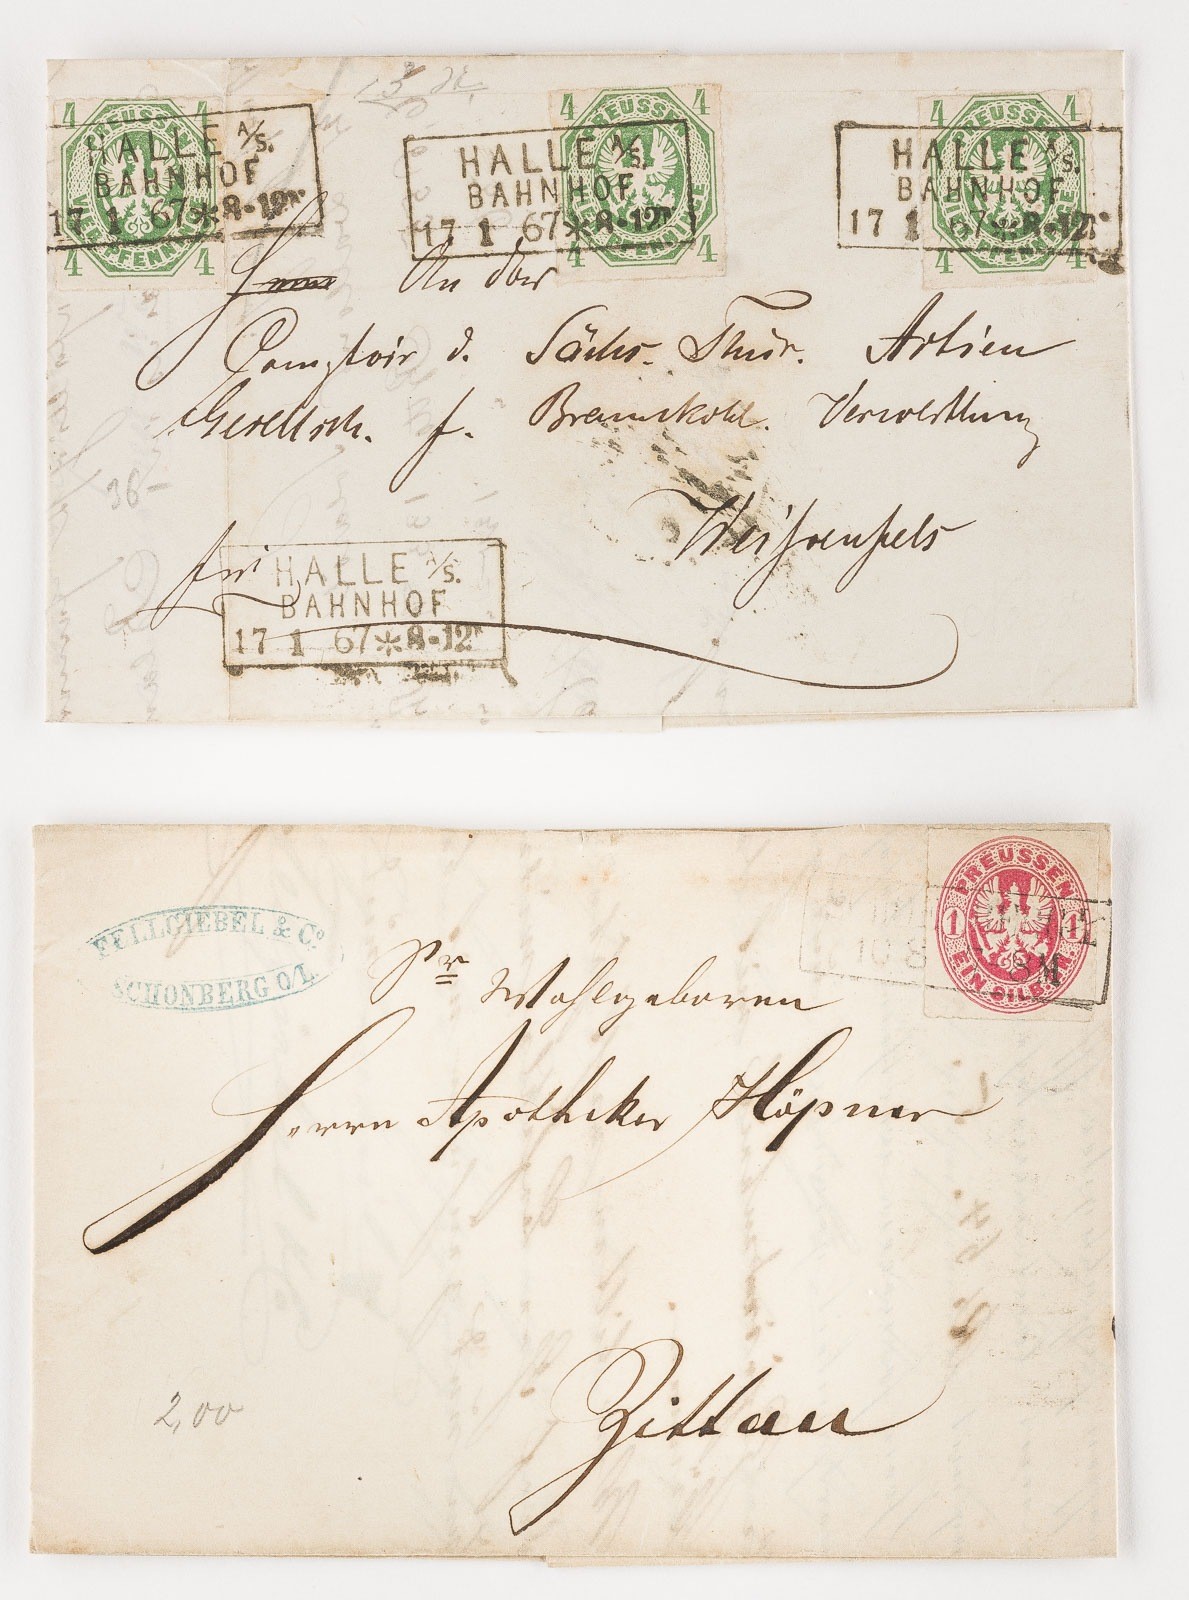 4 4
PREUSSEN
VIER PFENNINGE
4 4
4 4
PREUSSEN
PFENNINGE
4 4
4 4
PREUSSEN
PFENNINGE
4 4
HALLE A/S.
BAHNHOF
17 1 67 * 8-12
HALLE A/S.
BAHNHOF
17 1 67 * 8-12
HALLE A/S.
BAHNHOF
17 1 67 * 8-12
An das
Comptoir d. Sächs. Thür. Actien
Gesellsch. f. Braunkohl. Verwerthung
36-
Weißenfels
frei
HALLE A/S.
BAHNHOF
17 1 67 * 8-12
PREUSSEN
1 1
EIN SILB.GR.
10 8
FELLGIEBEL & Co
SCHÖNBERG O/L
Sr Wohlgeboren
Herrn Apotheker Höpner
Zittau
2,00